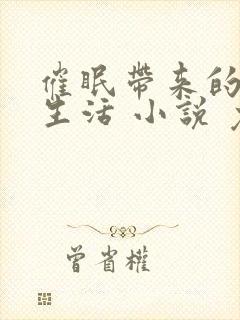 催眠帶来的
生活 小説
曾省權